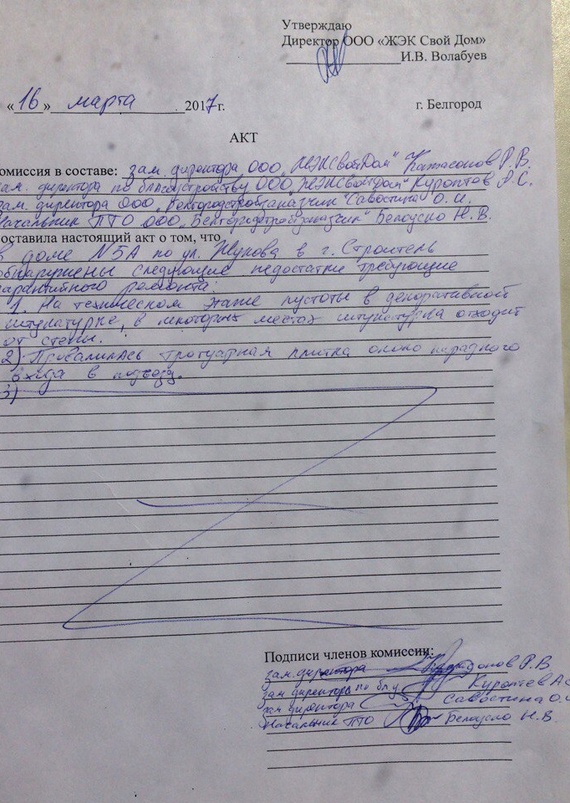 Утверждаю
Директор ООО «ЖЭК Свой Дом»
И.В. Волабуев
«16» марта 2017г. г. Белгород
АКТ
омиссия в составе: зам. директора ООО „ЖЭКСвойДом" Катасонов Р.В.
зам. директора по благоустройству ООО „ЖЭКСвойДом" Куроптев Р.С.
зам. директора ООО „Белгородстройзаказчик" Савостина О.И.
Начальник ПТО ООО „Белгородстройзаказчик" Белоуско Н.В.
оставила настоящий акт о том, что
в доме №5А по ул. Жукова в г. Строитель
обнаружены следующие недостатки требующие
гарантийного ремонта:
1. На техническом этаже пустоты в декоративной
штукатурке, в некоторых местах штукатурка отходит
от стены.
2) Провалилась тротуарная плитка около парадного
входа в подъезд.
3)
Подписи членов комиссии:
зам. директора Р.В
зам директора по бл/у Куроптев
зам директора Савостина О.
Начальник ПТО Белоуско Н.В.